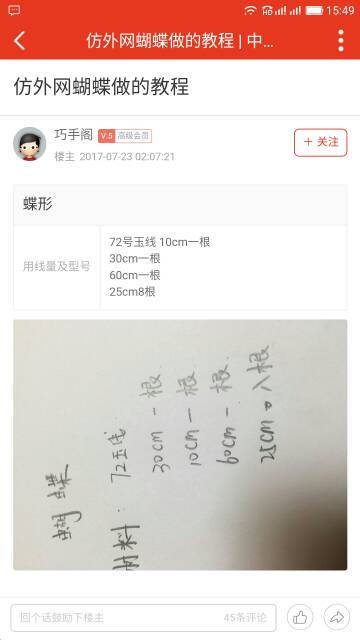 15:49
仿外网蝴蝶做的教程 | 中...
仿外网蝴蝶做的教程
巧手阁 V.5 高级会员
楼主 2017-07-23 02:07:21
+ 关注
蝶形
用线量及型号
72号玉线 10cm一根
30cm一根
60cm一根
25cm8根
蝴蝶
材料: 72玉线
30cm 一根.
10cm 一根.
60cm 一根.
25cm 。八根
回个话鼓励下楼主
45条评论